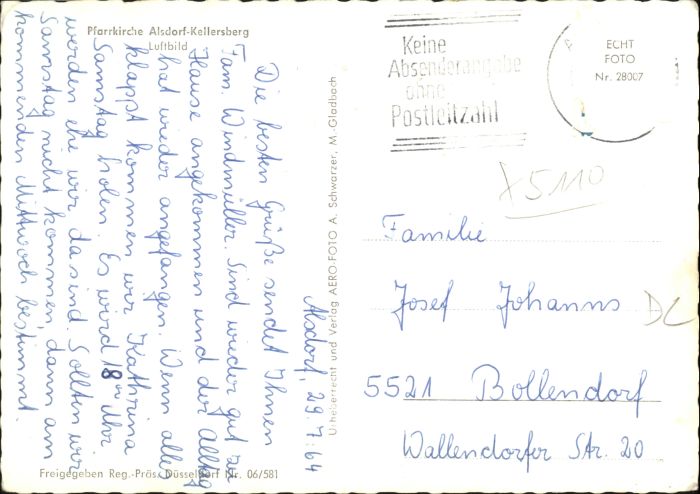 Pfarrkirche Alsdorf-Kellersberg
Luftbild
Keine
Absenderangabe
ohne
Postleitzahl
ECHT
FOTO
Nr. 28007
X5110
Alsdorf, 29.7.64
Die besten Grüße sendet Ihnen
Fam. Windmüller. Sind wieder gut zu
Hause angekommen und der Alltag
hat wieder angefangen. Wenn alles
klappt kommen wir Kathrina
Samstag holen. Es wird 18 00 Uhr
werden ehe wir da sind. Sollten wir
Samstag nicht kommen, dann am
kommenden Mittwoch bestimmt.
Urheberrecht und Verlag AERO-FOTO A. Schwarzer, M.-Gladbach
Familie
Josef Johanns
5521 Bollendorf
Wallendorfer Str. 20
Freigegeben Reg.-Präs. Düsseldorf Nr. 06/581